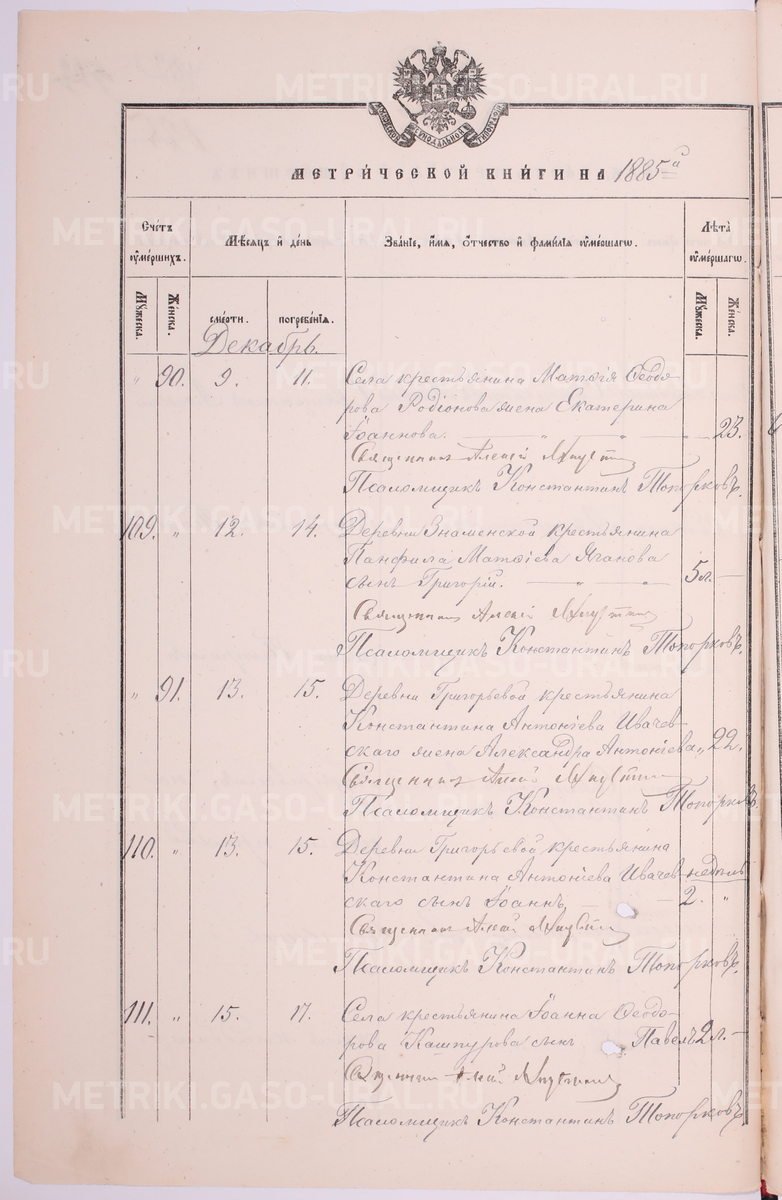 СѴНОДАЛЬНОЙ
МЕТРИ́ЧЕСКОЙ КНИ́ГИ НА 1885 й
Сче́тъ оу҆ме́ршихъ.
Мѣ́сяцъ и҆ де́нь
Зва́нїе, и҆́мя, ѻ҆́тчество и҆ фами́лїя оу҆ме́ршагѡ.
Лѣ́та оу҆ме́ршагѡ.
Мꙋ́жеска.
Же́нска.
сме́рти.
погребе́нїя.
Мꙋ́жеска.
Же́нска.
Декабрь.
" 90. 9. 11. Села крестьянина Матѳія Ѳеодо-
рова Родіонова жена Екатерина
Іоаннова. — " — " — 23.
Священник Алексій
Псаломщикъ Константинъ Топорковъ.
109. " 12. 14. Деревни Знаменской крестьянина
Панфила Матѳіева Яганова
сынъ Григорій. — " — " — 5 л. —
Священник Алексій
Псаломщикъ Константинъ Топорковъ.
" 91. 13. 15. Деревни Григорьевой крестьянина
Константина Антоніева Ивачев-
скаго жена Александра Антоніева " 22.
Священник Алексій
Псаломщикъ Константинъ Топорковъ.
110. " 13. 15. Деревни Григорьевой крестьянина
Константина Антоніева Ивачев- недѣль
скаго сынъ Іоаннъ — — 2. "
Священник Алексій
Псаломщикъ Константинъ Топорковъ.
111. " 15. 17. Села крестьянина Іоанна Ѳеодо-
рова Кашпурова сынъ Павелъ 2 л. —
Священник Алексій
Псаломщикъ Константинъ Топорковъ.
METRIKI.GASO-URAL.RU